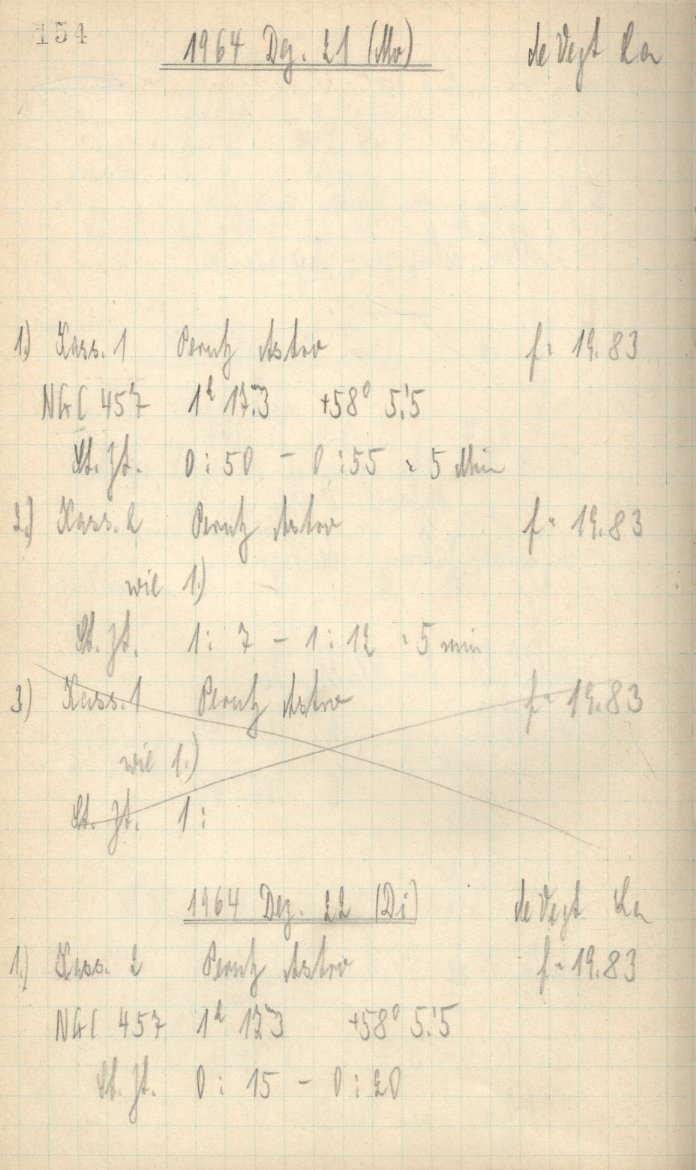 154
1964 Dez. 21 (Mo) de Vegt La
1.) Kass. 1 Perutz Astro f = 19.83
NGC 457 1h 17m.3 +58° 5.'5
St. Zt. 0:50 - 0:55 = 5 Min
2.) Kass. 2 Perutz Astro f = 19.83
wie 1.)
St. Zt. 1:7 - 1:12 = 5 min
3.) Kass. 1 Perutz Astro f = 19.83
wie 1.)
St. Zt. 1:
1964 Dez. 22 (Di) de Vegt La
1.) Kass. 2 Perutz Astro f = 19.83
NGC 457 1h 17m.3 +58° 5.'5
St. Zt. 0:15 - 0:20